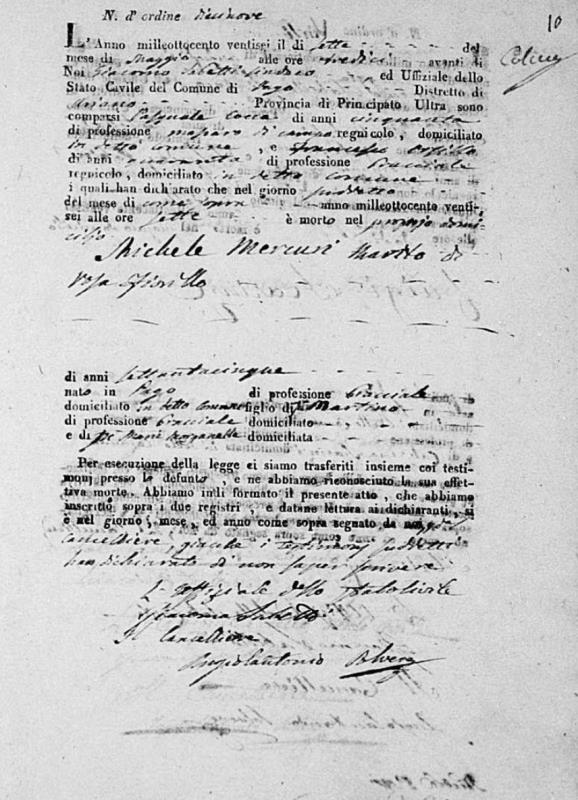 10
N. d'ordine diecinove
L'Anno milleottocento ventisei il dì sette del
mese di Maggio alle ore tredici avanti di
Noi Giacomo Sindaco ed Uffiziale dello
Stato Civile del Comune di Pago Distretto di
Ariano Provincia di Principato Ultra sono
comparsi Pasquale di anni cinquanta
di professione regnicolo, domiciliato
in detto comune, e Francesco
di anni quaranta di professione Bracciale
regnicolo, domiciliato in detto comune
i quali han dich'arato che nel giorno suddetto
del mese di come sopra anno milleottocento venti-
sei alle ore sette è morto nel proprio domi-
cilio
Michele Mercuri Marito di
Rosa Fiorillo
di anni settantacinque
nato in Pago di profes:sione Bracciale
domiciliato in detto comune figlio di Martino
di professione bracciale domiciliato
e di domiciliata
Per esecuzione della legge ci siamo trasferiti insieme coi testi-
monj presso lo defunto, e ne abbiamo riconosciuto la sua effet-
tiva morto. Abbiamo indi formato il presente atto, che abbiamo
inscritto sopra i due registri, e datane lettura ai dichiaranti, si
è nel giorno, mese, ed anno come sopra segnato da noi, e dal
Cancelliere, giacché i testimonj suddetti
han dichiarato di non saper scrivere
L'offiziale dello Stato Civile
Giacomo
Il Cancelliere
Angelantonio